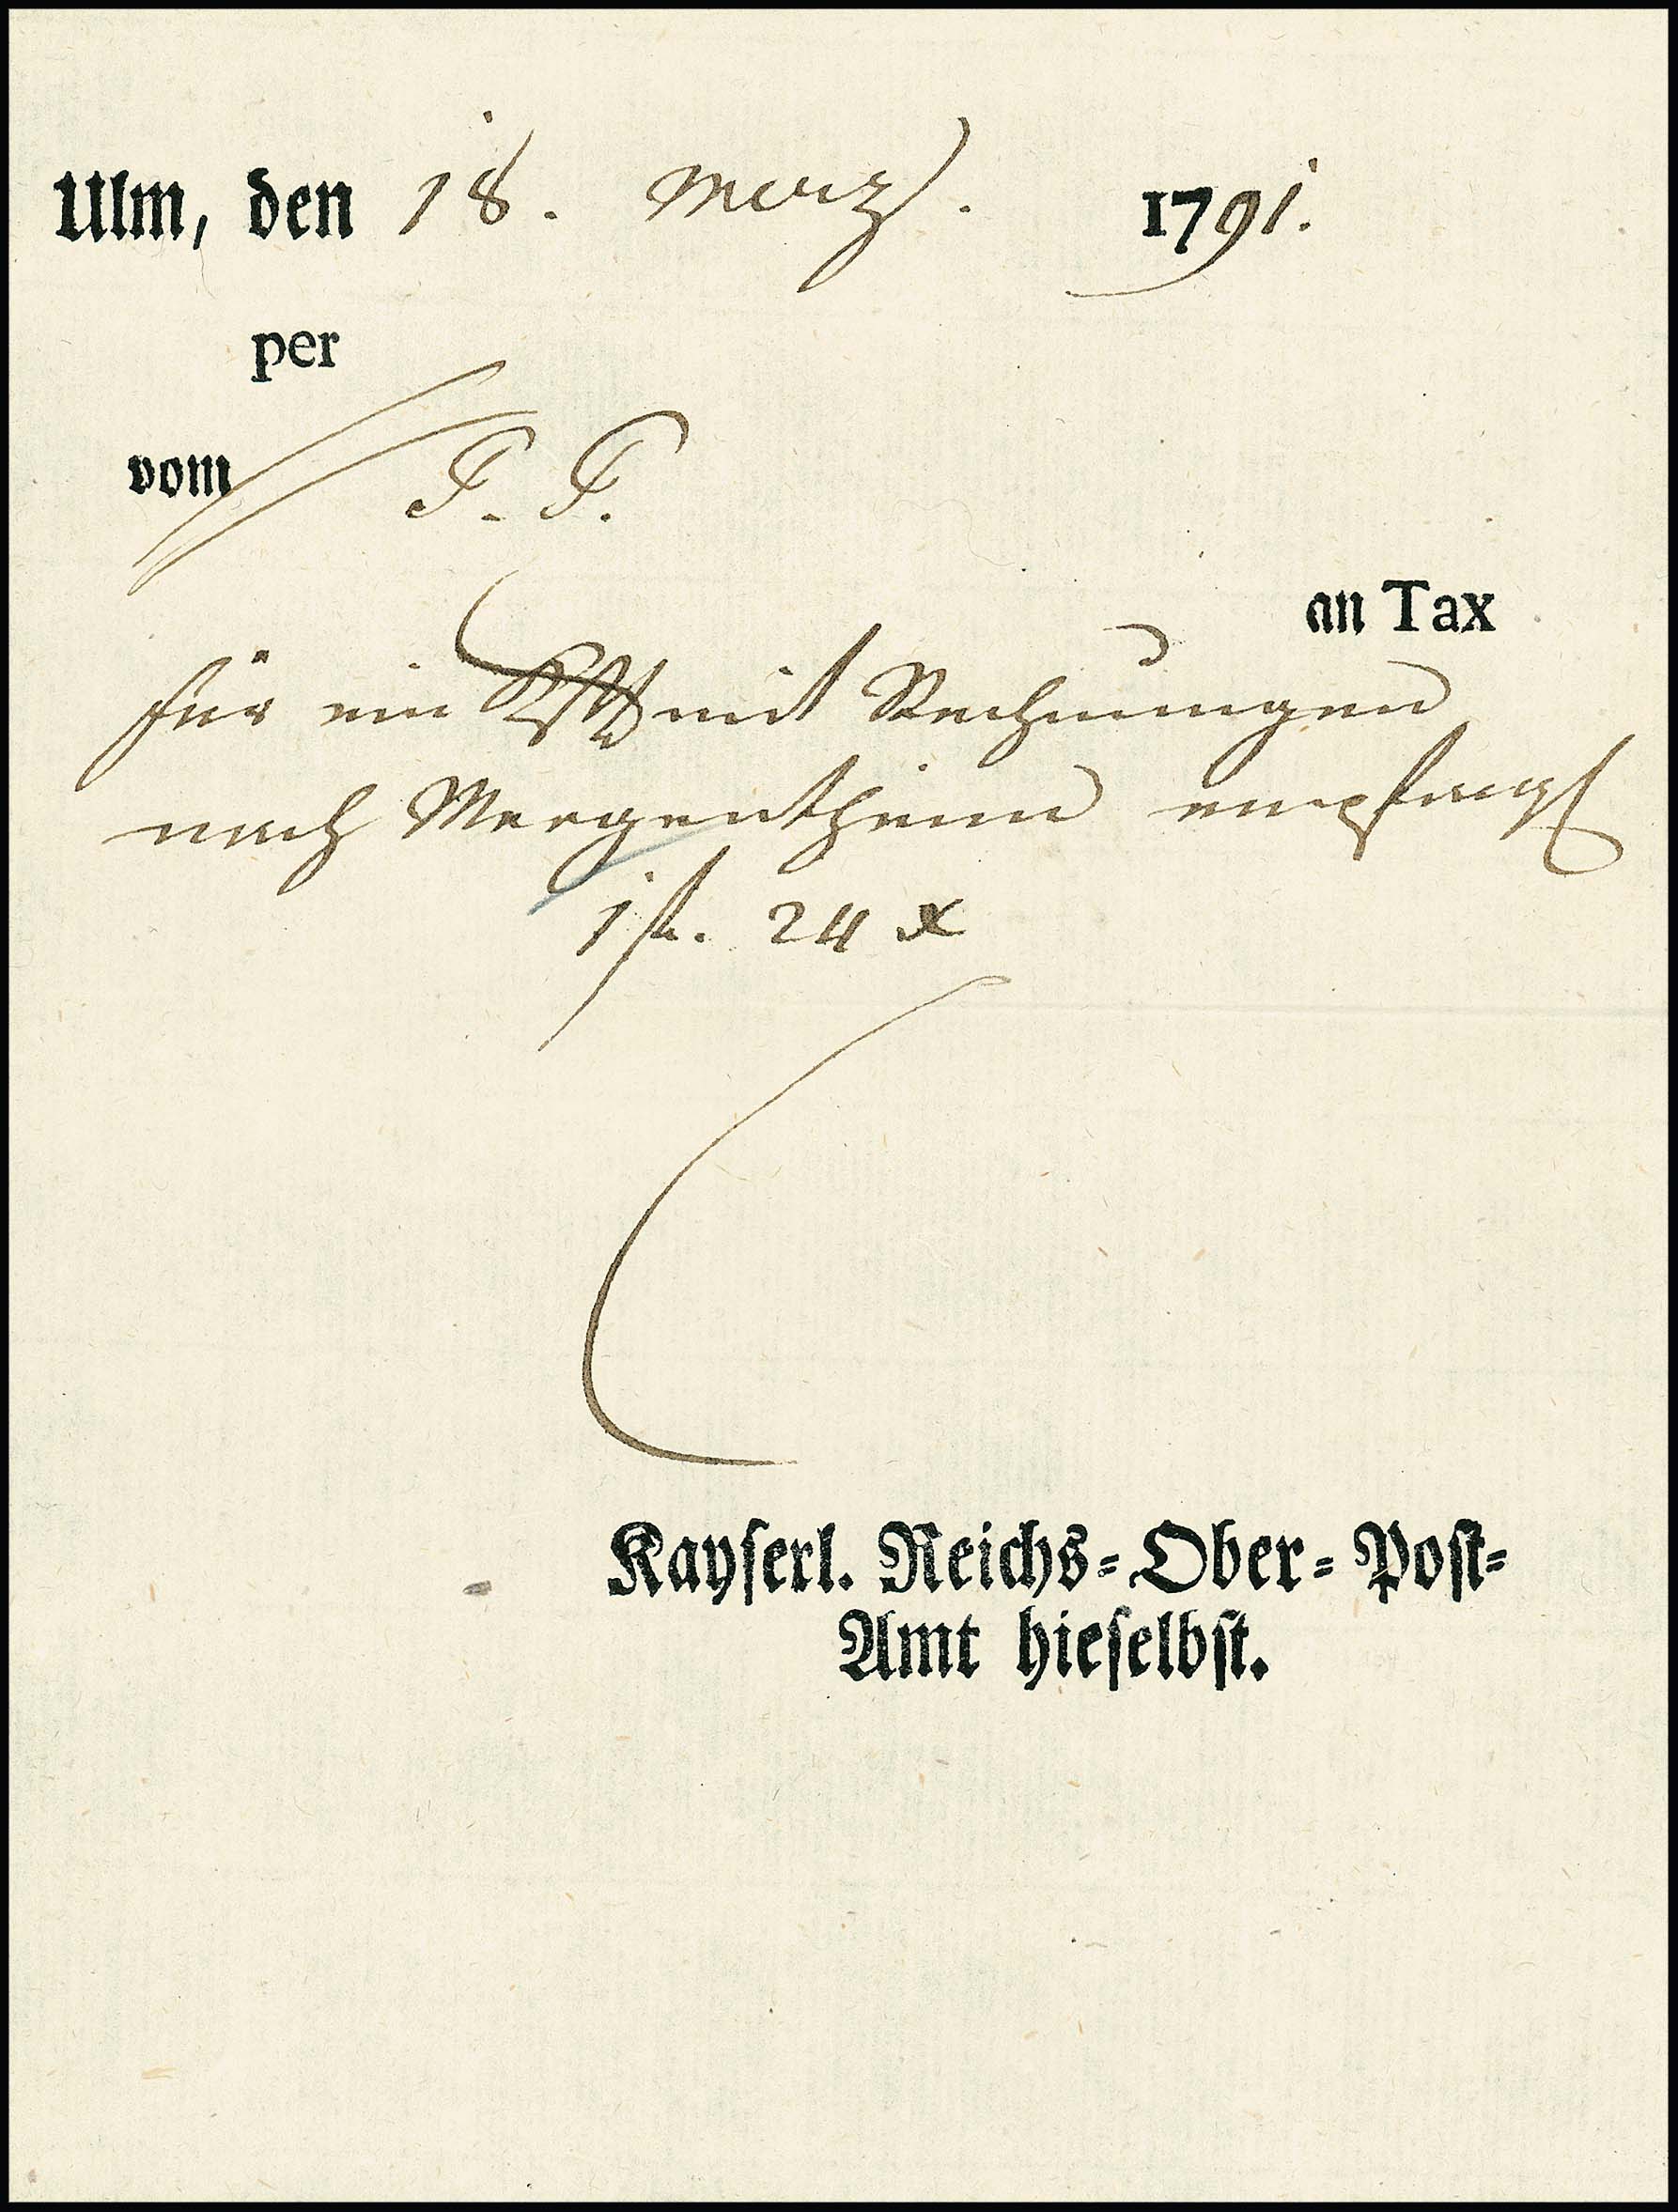 Ulm, den 18. Merz. 1791.
per
vom T. T.
an Tax
für ein mit Rechnungen
nach Mergentheim
1 fl. 24 x
Kayserl. Reichs-Ober-Post-
Amt hieselbst.